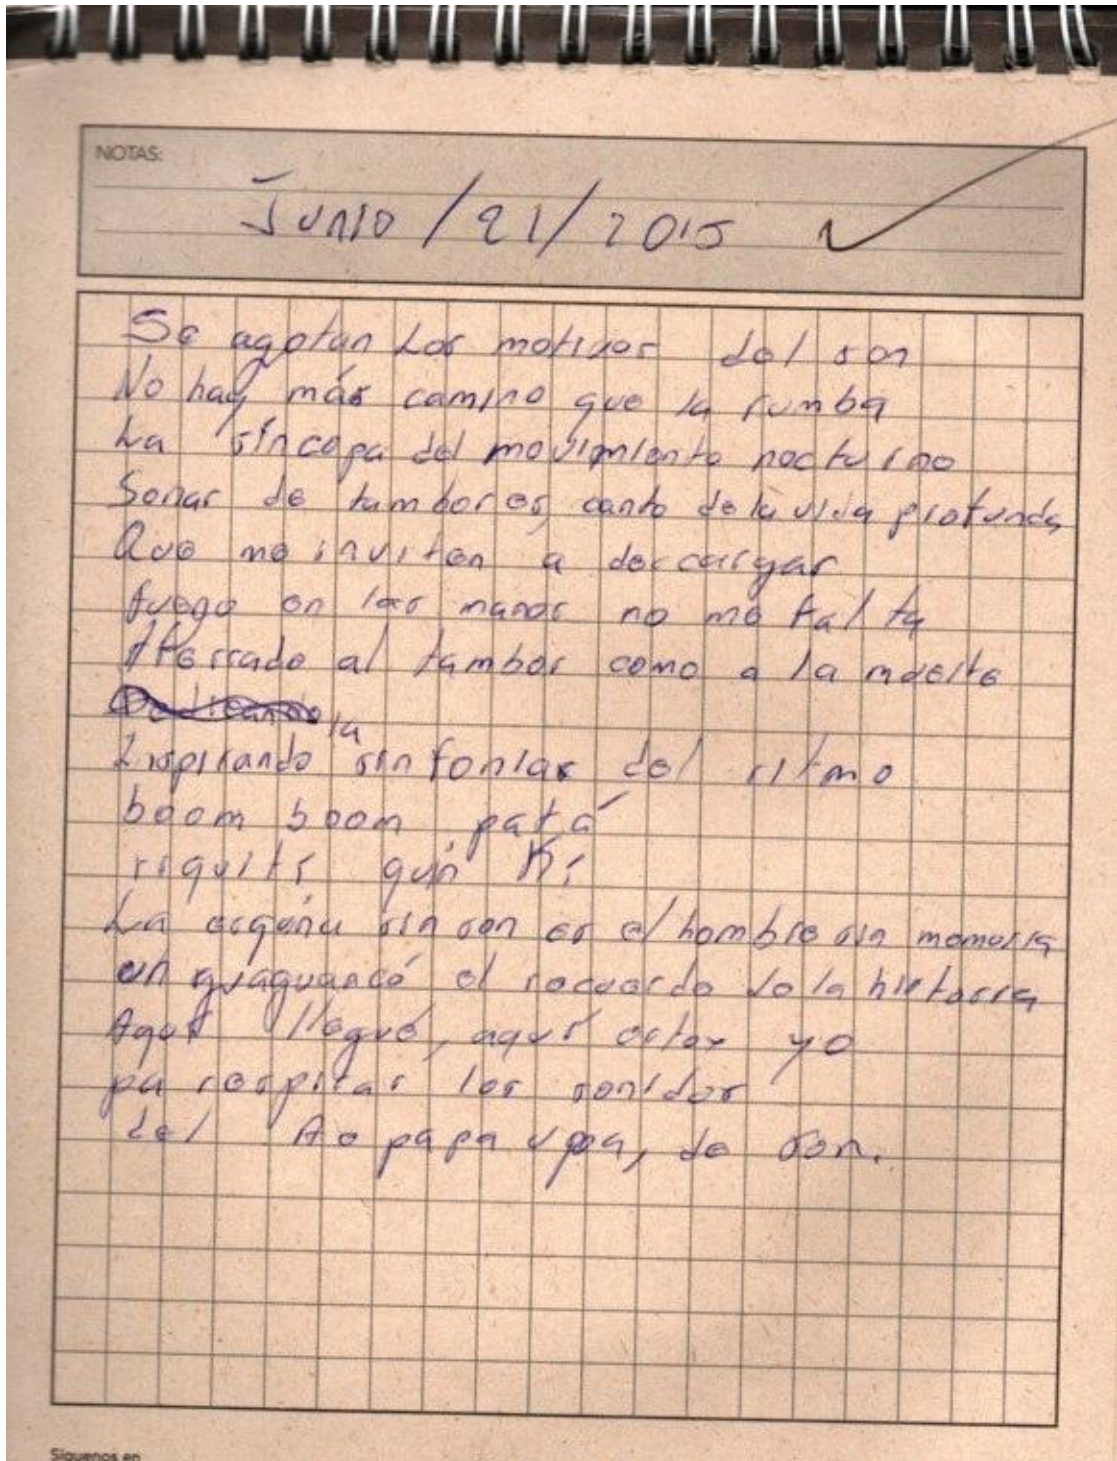 NOTAS:
Junio / 21 / 2015
Se agotan Los motivos del son
No hay más camino que la rumba
La síncopa del movimiento nocturno
Sonar de tambores, canto de la vida profunda
Que me inviten a descargar
fuego en las manos no me falta
Aferrado al tambor como a la muerte
la
Inspirando sinfonías del ritmo
boom boom patá
riquití qun
La esquina sin son es el hombre sin memoria
un guaguancó el recuerdo de la historia
Aquí llegué, aquí estoy yo
pa respirar los sonidos
del Ae papa upa, de son.
Síguenos en